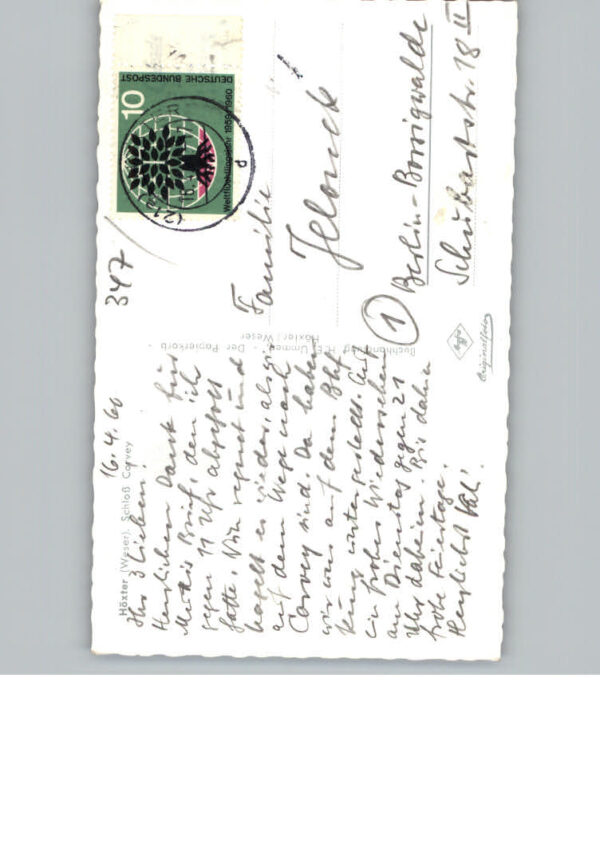 Höxter (Weser). Schloß Corvey
16.4.60
Ihr 3 Lieben!
Herzlichen Dank für
Muttis Brief, den ich
gegen 11 Uhr abgeholt
hatte. Nun regnet und
hagelt es wieder, als wir
auf dem Wege nach
Corvey sind. Da haben
wir uns auf dem Bhf
untergestellt. Auf
ein frohes Wiedersehen
am Dienstag gegen 21
Uhr daheim. Bis dahin
frohe Feiertage.
Herzlichst
Buchhandlung H. E. Ummen - "Der Papierkorb"
Höxter/Weser
347
DEUTSCHE BUNDESPOST
10
Weltflüchtlingsjahr 1959/1960
(21a)
d
Familie
Jelonek
1 Berlin-Borsigwalde
Schubartstr. 18 II
Agfa
Originalfoto